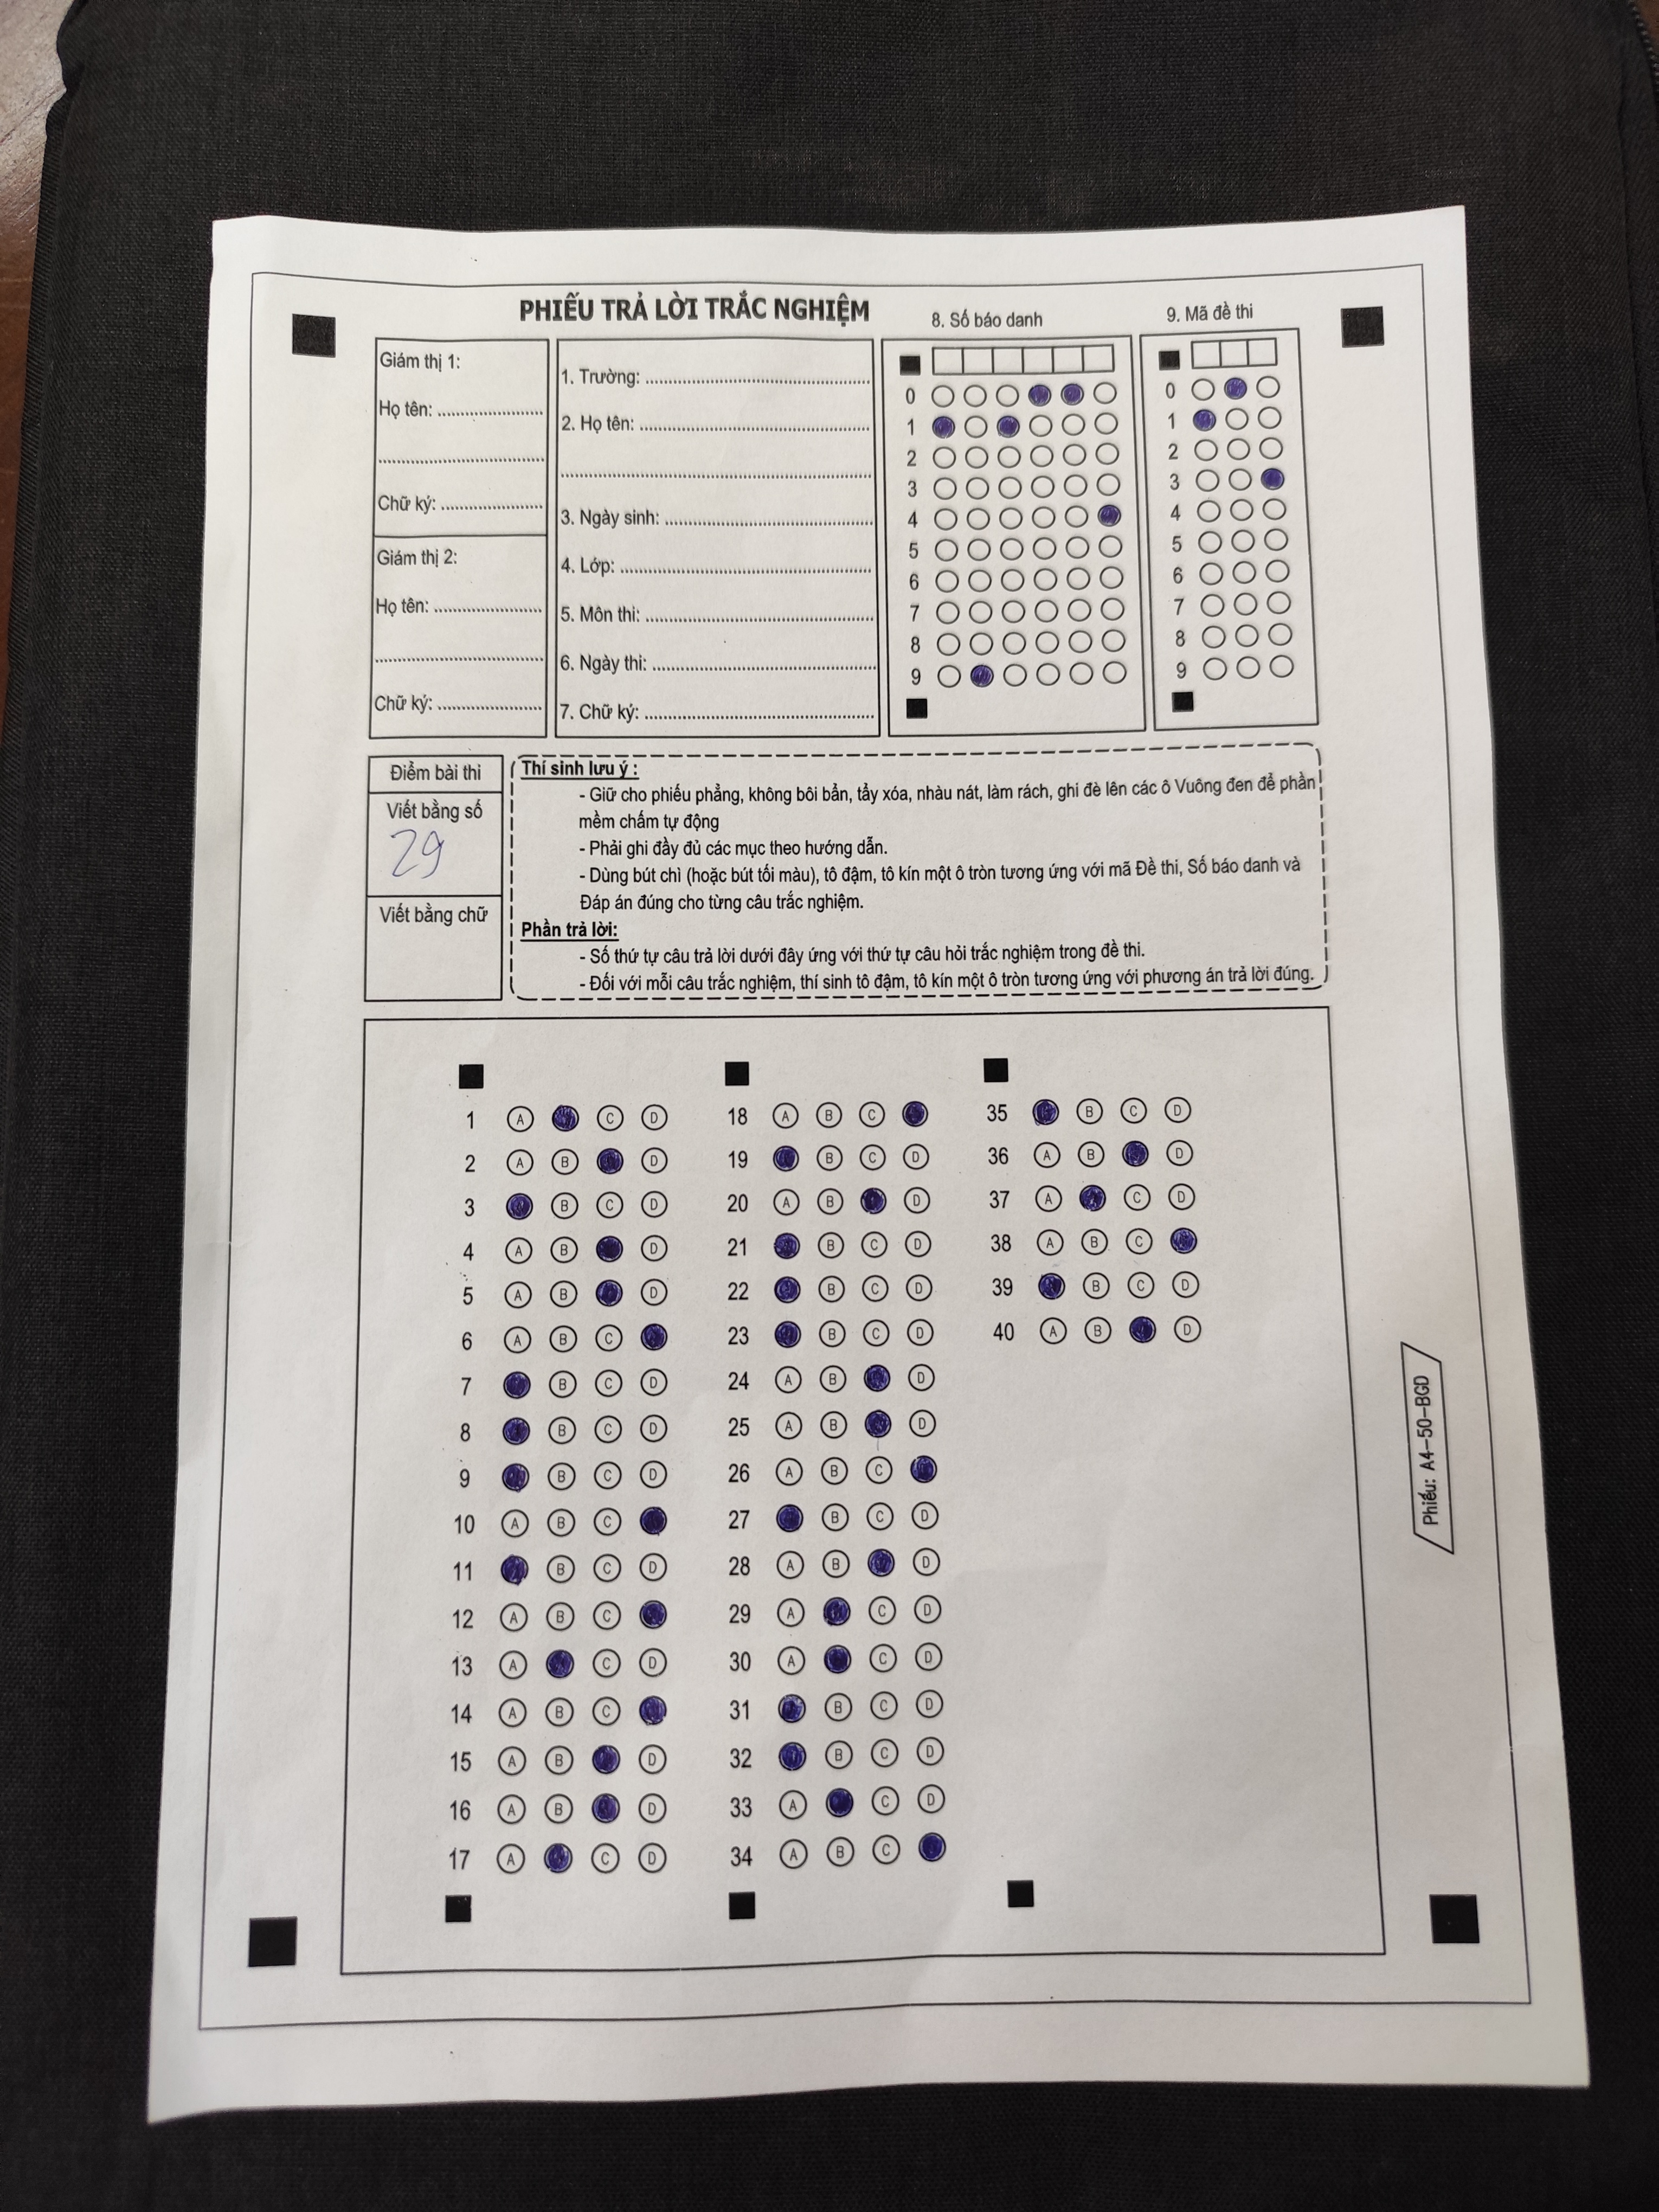 PHIẾU TRẢ LỜI TRẮC NGHIỆM
8. Số báo danh
9. Mã đề thi
Giám thị 1:
Họ tên: ....................
Chữ ký: ....................
Giám thị 2:
Họ tên: ....................
Chữ ký: ....................
1. Trường: ....................
2. Họ tên: ....................
3. Ngày sinh: ....................
4. Lớp: ....................
5. Môn thi: ....................
6. Ngày thi: ....................
7. Chữ ký: ....................
0 0
1 1
2 2
3 3
4 4
5 5
6 6
7 7
8 8
9 9
Điểm bài thi
Viết bằng số
29
Viết bằng chữ
Thí sinh lưu ý :
- Giữ cho phiếu phẳng, không bôi bẩn, tẩy xóa, nhàu nát, làm rách, ghi đè lên các ô Vuông đen để phần
mềm chấm tự động
- Phải ghi đầy đủ các mục theo hướng dẫn.
- Dùng bút chì (hoặc bút tối màu), tô đậm, tô kín một ô tròn tương ứng với mã Đề thi, Số báo danh và
Đáp án đúng cho từng câu trắc nghiệm.
Phần trả lời:
- Số thứ tự câu trả lời dưới đây ứng với thứ tự câu hỏi trắc nghiệm trong đề thi.
- Đối với mỗi câu trắc nghiệm, thí sinh tô đậm, tô kín một ô tròn tương ứng với phương án trả lời đúng.
1 A C D
2 A B D
3 B C D
4 A B D
5 A B D
6 A B C
7 B C D
8 B C D
9 B C D
10 A B C
11 B C D
12 A B C
13 A C D
14 A B C
15 A B D
16 A B D
17 A C D
18 A B C
19 B C D
20 A B D
21 B C D
22 B C D
23 B C D
24 A B D
25 A B D
26 A B C
27 B C D
28 A B D
29 A C D
30 A C D
31 B C D
32 B C D
33 A C D
34 A B C
35 B C D
36 A B D
37 A C D
38 A B C
39 B C D
40 A B D
Phiếu: A4-50-BGD